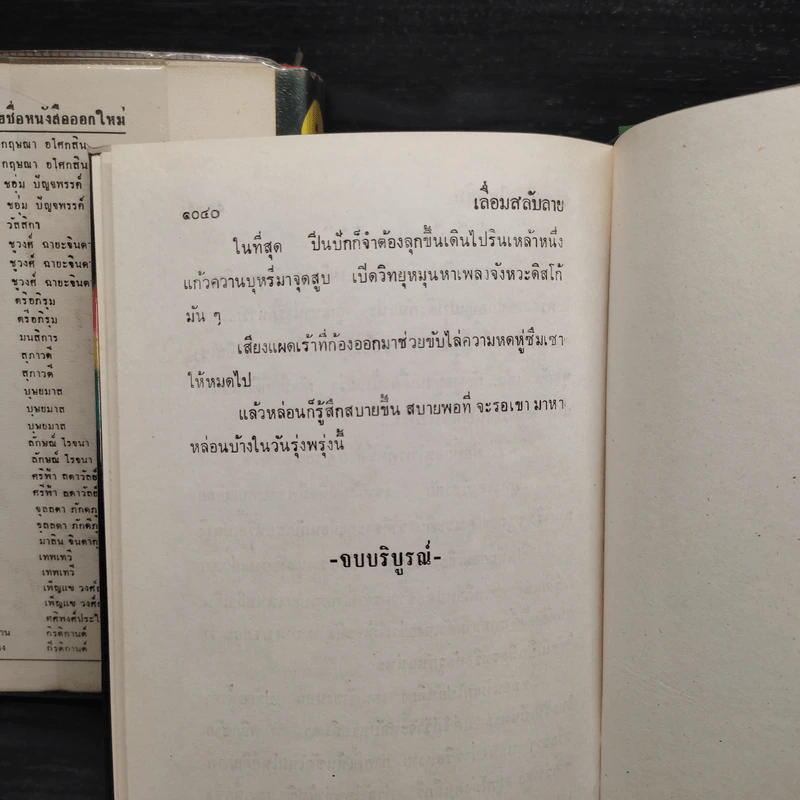 อชื่อหนังสือออกใหม่
กฤษณา อโศกสิน
กฤษณา อโศกสิน
ชอุ่ม ปัญจพรรค์
ชอุ่ม ปัญจพรรค์
วัสสิกา
ชูวงศ์ ฉายะจินดา
ชูวงศ์ ฉายะจินดา
ชูวงศ์ ฉายะจินดา
ตรีอภิรุม
ตรีอภิรุม
มนสิการ
สุภาวดี
สุภาวดี
บุษยมาส
บุษยมาส
บุษยมาส
ลักษณ์ โรจนา
ลักษณ์ โรจนา
ศรีฟ้า ลดาวัลย์
ศรีฟ้า ลดาวัลย์
จุลลดา ภักดีภู
จุลลดา ภักดีภู
มาลิน จินดากุ
เทพเทวี
เทพเทวี
เพ็ญแข วงศ์
เพ็ญแข วงศ์
กีรติกานต์
กีรติกานต์
๑๐๔๐ เลื่อมสลับลาย
ในที่สุด ปีนปักก็จำต้องลุกขึ้นเดินไปรินเหล้าหนึ่ง
แก้วควานบุหรี่มาจุดสูบ เปิดวิทยุหมุนหาเพลงจังหวะดิสโก้
มัน ๆ
เสียงแผดเร้าที่ก้องออกมาช่วยขับไล่ความหดหู่ซึมเซา
ให้หมดไป
แล้วหล่อนก็รู้สึกสบายขึ้น สบายพอที่ จะรอเขา มาหา
หล่อนบ้างในวันรุ่งพรุ่งนี้
-จบบริบูรณ์-